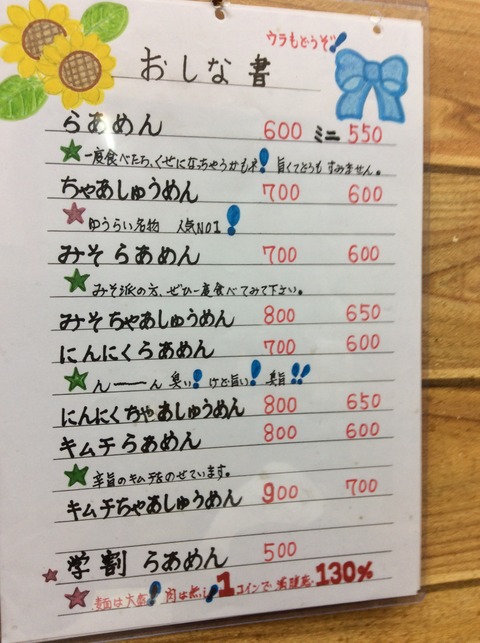 ウラもどうぞ!
おしな書
らあめん 600 ミニ 550
★一度食べたら、くせになっちゃうかもネ! 旨くてどうも すみません。
ちゃあしゅうめん 700 600
★ゆうらい名物 人気NO1!
みそらあめん 700 600
★みそ派の方、ぜひ一度食べてみて下さい。
みそちゃあしゅうめん 800 650
にんにくらあめん 700 600
★ん――ん 臭い! けど旨い! 美旨!!
にんにくちゃあしゅうめん 800 650
キムチらあめん 800 600
★辛旨のキムチをのせています。
キムチちゃあしゅうめん 900 700
★学割 らあめん 500
★麺は大盛! 肉は無し! 1コインで、満足度130%